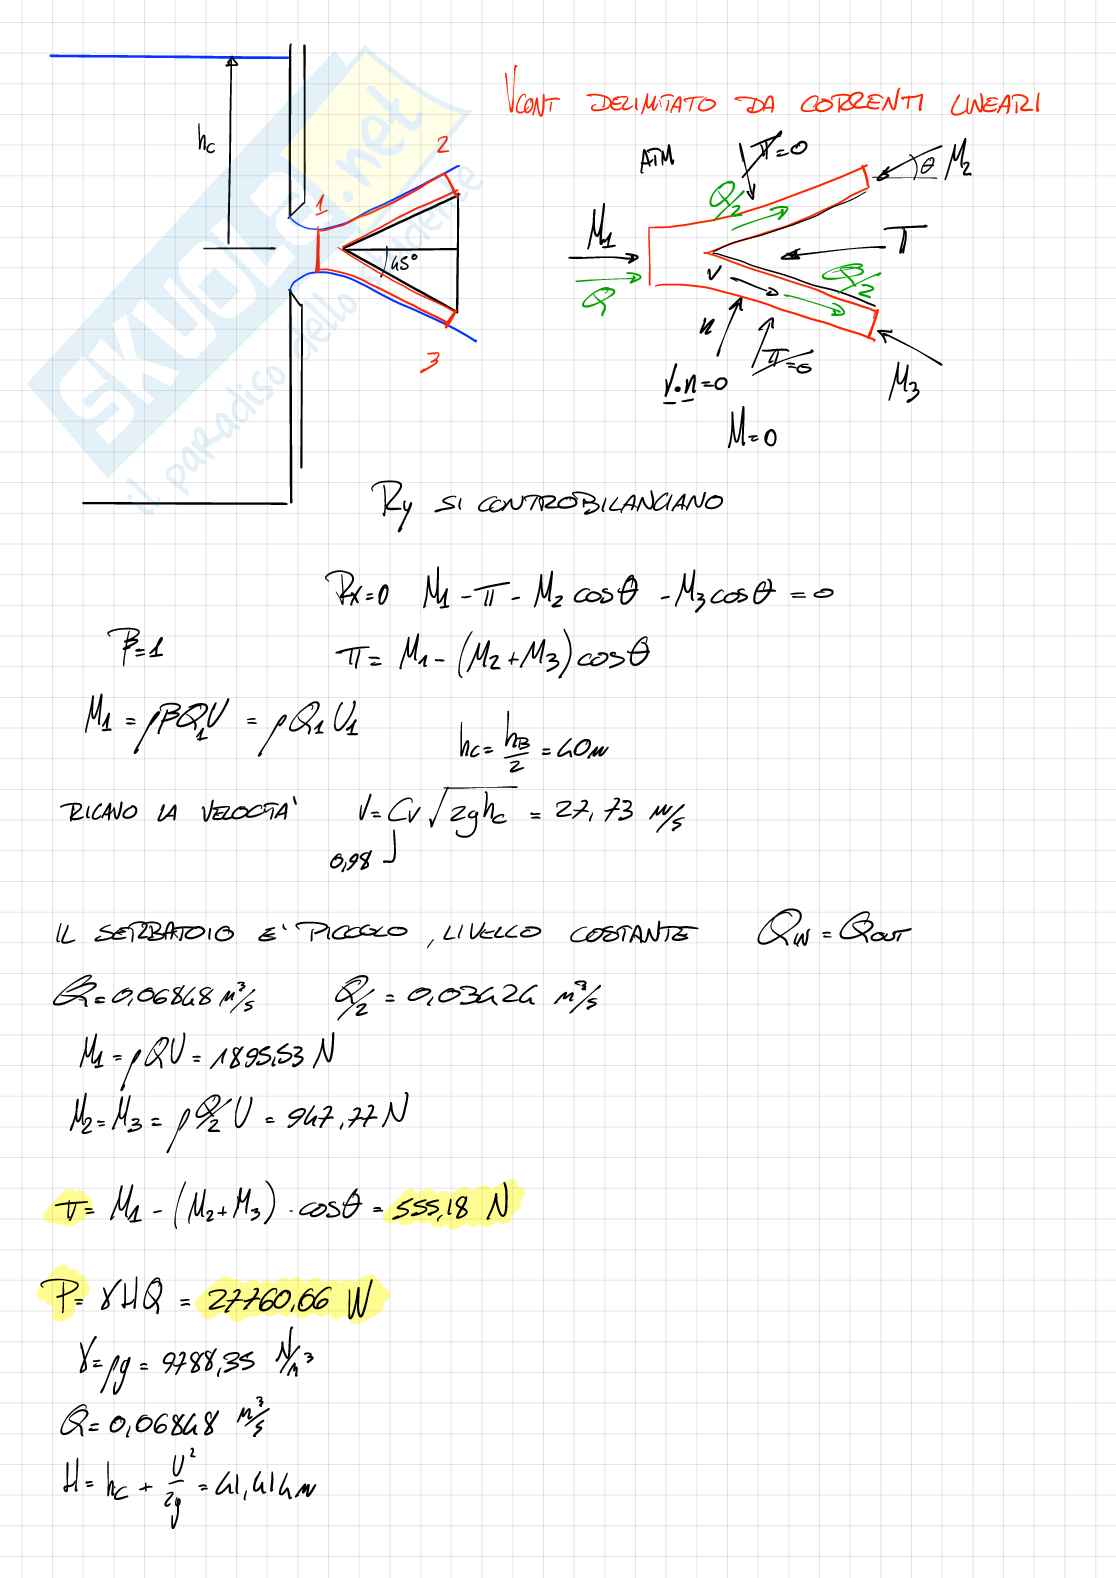 VCONT DELIMITATO DA CORRENTI LINEARI
hc
1
2
3
45°
ATM
Π=0
M1
Q
Q/2
θ M2
Π
Q/2
V
n
Π=0
V·n=0
M3
M=0
SKUOLA.net
il paradiso dello studente
Ry SI CONTROBILANCIANO
Rx=0 M1 - Π - M2 cosθ - M3 cosθ = 0
β=1
Π = M1 - (M2+M3) cosθ
M1 = ρβQ1U = ρQ1U1
hc = hB/2 = 40m
RICAVO LA VELOCITA' V = Cv √2ghc = 27,73 m/s
0,98
IL SERBATOIO E' PICCOLO, LIVELLO COSTANTE QIN = QOUT
Q = 0,06848 m³/s Q/2 = 0,03424 m³/s
M1 = ρQU = 1895,53 N
M2 = M3 = ρ Q/2 U = 947,77 N
Π = M1 - (M2+M3) · cosθ = 555,18 N
P = γHQ = 27760,66 W
γ = ρg = 9788,35 N/m³
Q = 0,06848 m³/s
H = hc + U²/2g = 41,414m